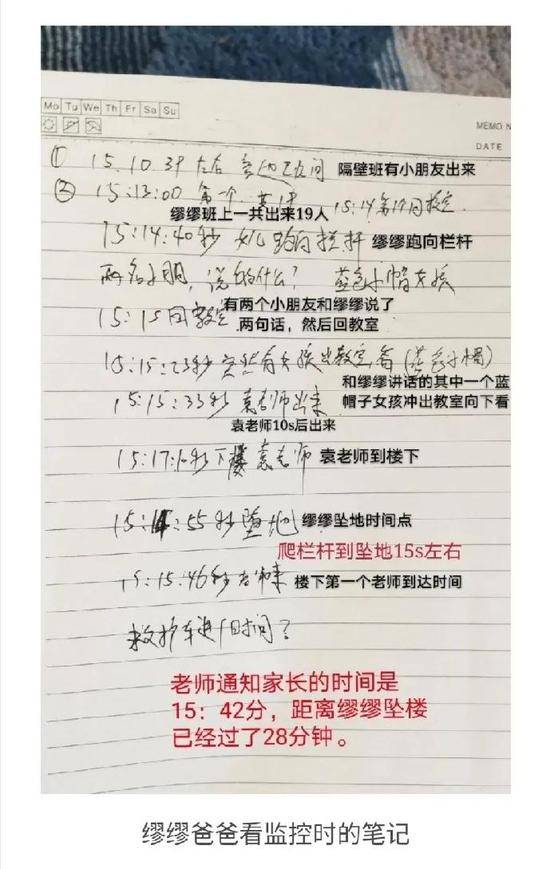 Mo Tu We Th Fr Sa Su
MEMO N
DATE
① 15.10.39 左右 隔壁班有小朋友出来
② 15:13:00 第一个 15:14 第19回教室
缪缪班上一共出来19人
15:14:40秒 跑向拦杆 缪缪跑向栏杆
两名小朋, 说的什么? 蓝色小帽女孩
有两个小朋友和缪缪说了
15:15回教室 两句话，然后回教室
15:15:23秒 突然有女孩出教室看 (蓝色小帽)
和缪缪讲话的其中一个蓝
15:15:33秒 袁老师出来 帽子女孩冲出教室向下看
袁老师10s后出来
15:17:10秒 下楼 袁老师 袁老师到楼下
15:14:55秒 坠地 缪缪坠地时间点
爬栏杆到坠地15s左右
15:15:46秒 楼下第一个老师到达时间
救护车进门时间?
老师通知家长的时间是
15：42分，距离缪缪坠楼
已经过了28分钟。
缪缪爸爸看监控时的笔记